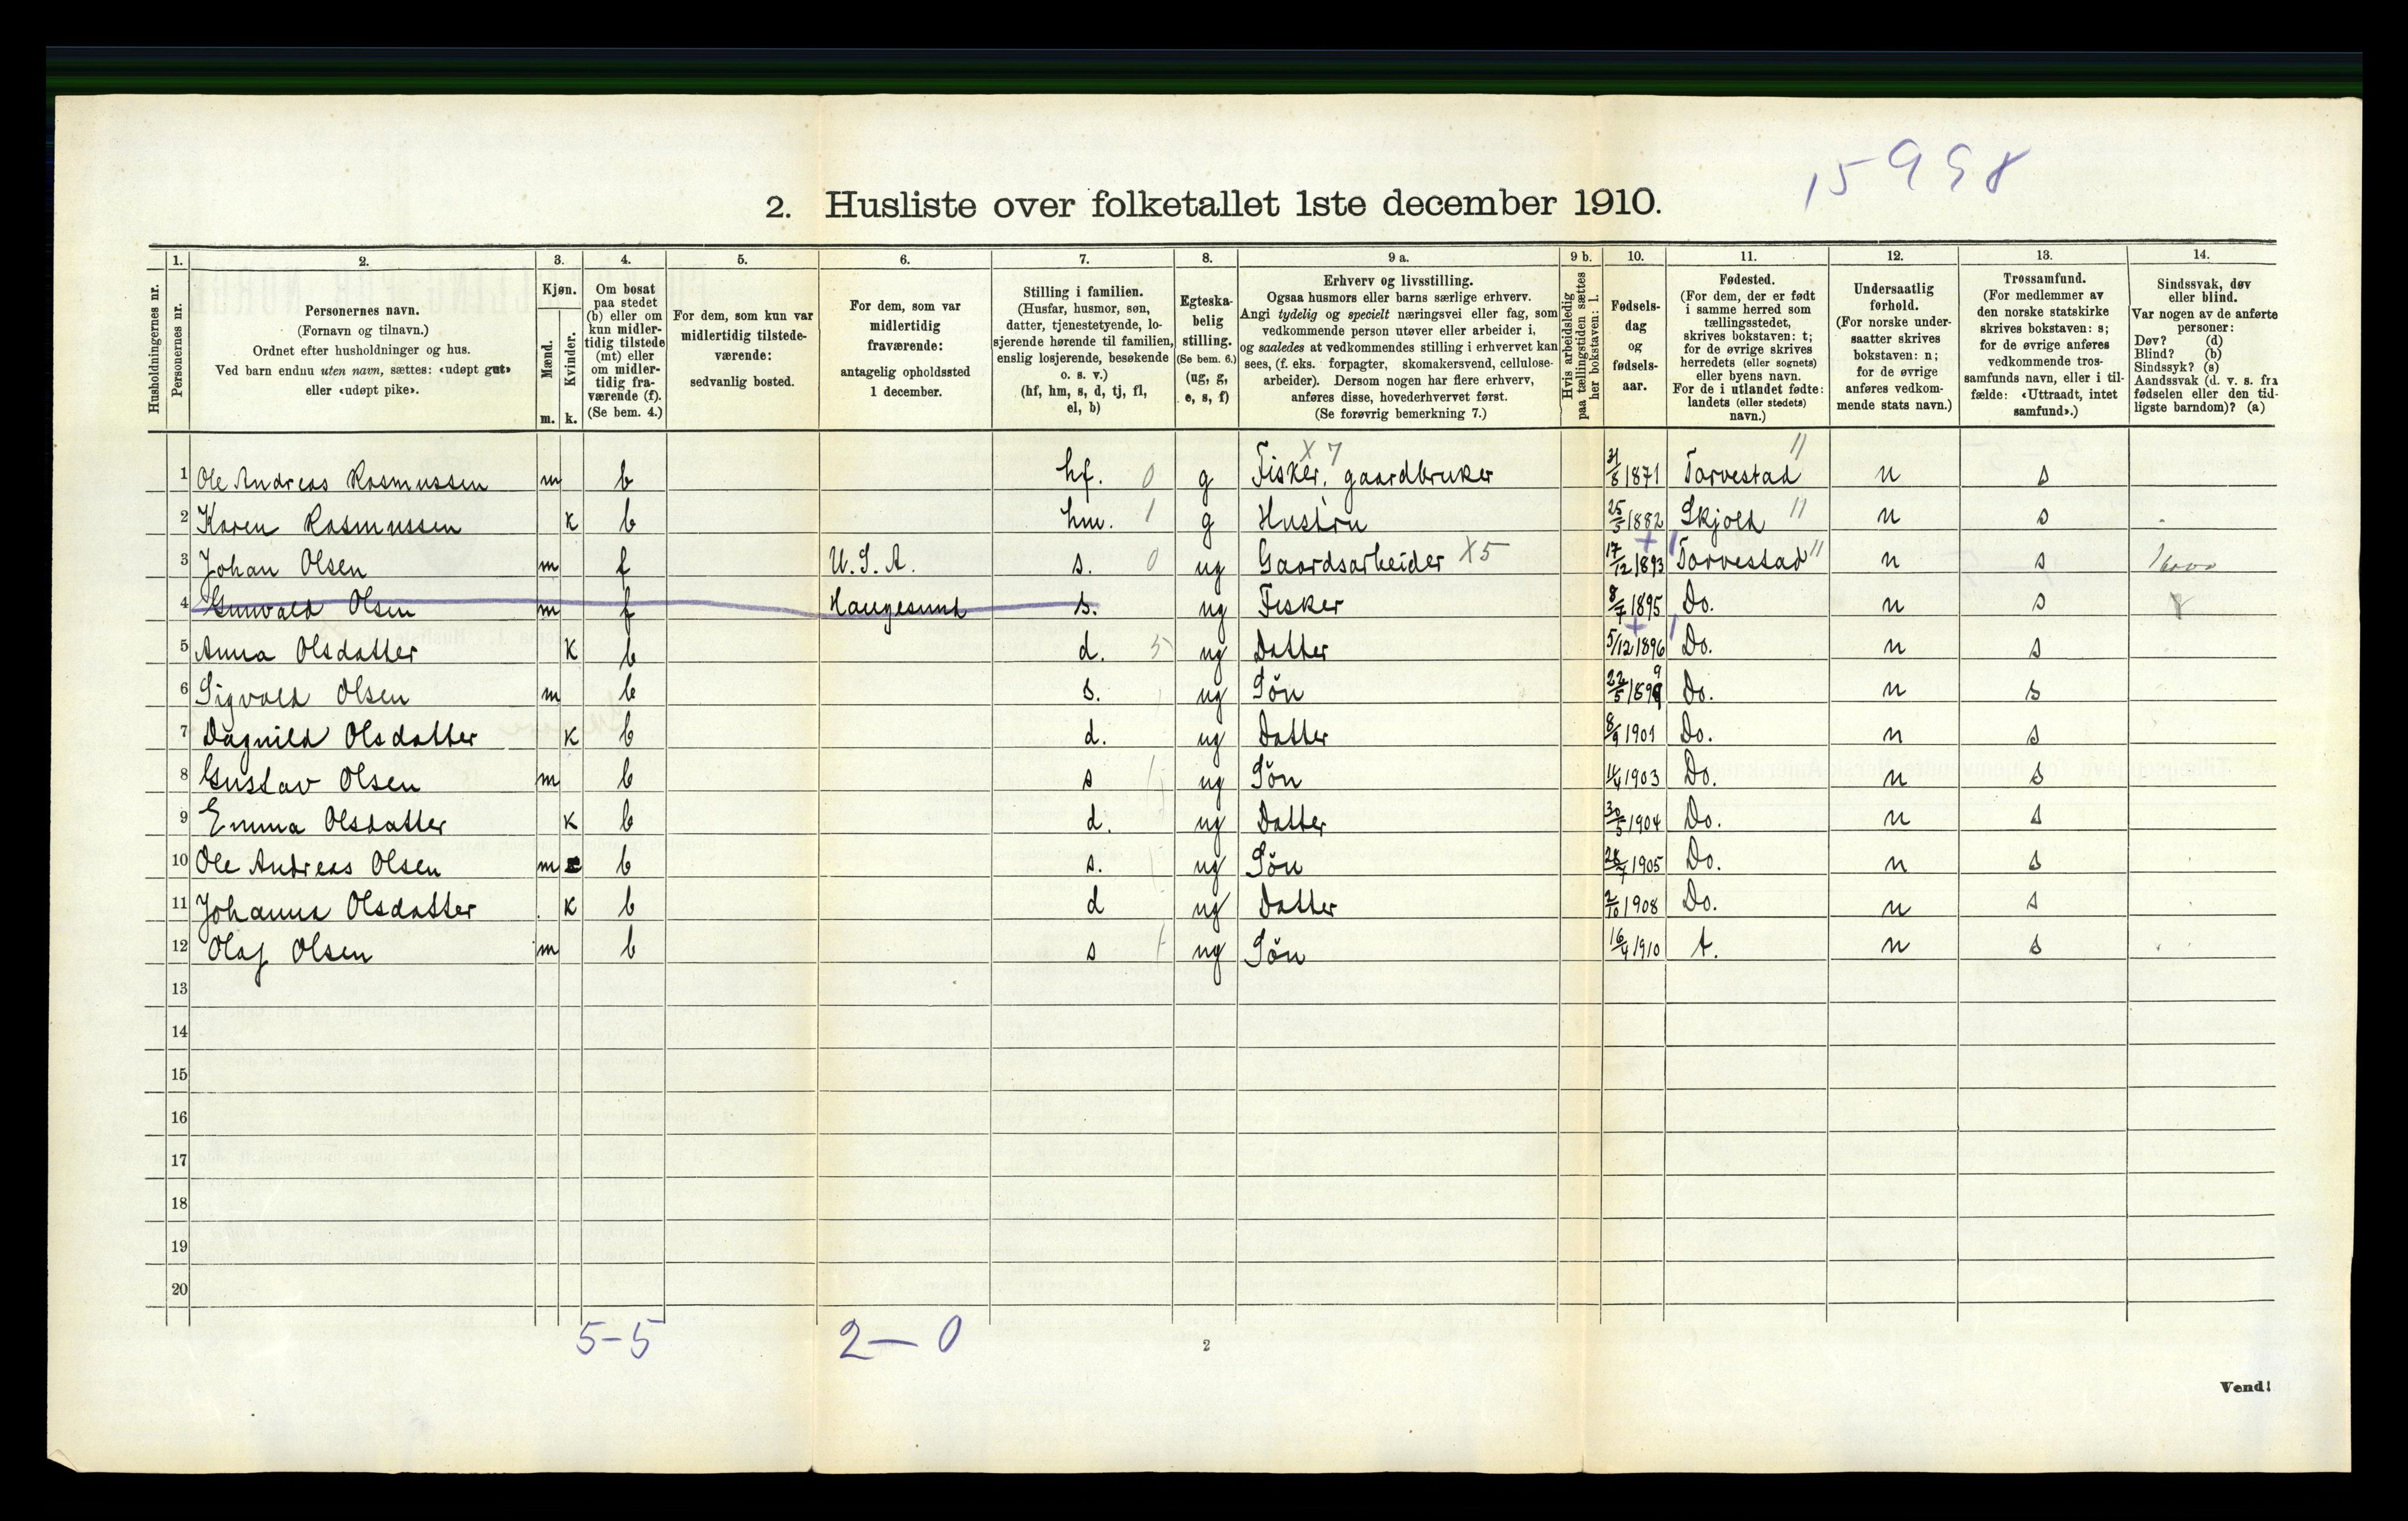 15998
2. Husliste over folketallet 1ste december 1910.
Husholdningernes nr.
1. Personernes nr.
2. Personernes navn. (Fornavn og tilnavn.) Ordnet efter husholdninger og hus. Ved barn endnu uten navn, sættes: «udøpt gut» eller «udøpt pike».
3. Kjøn. Mænd. m. Kvinder. k.
4. Om bosat paa stedet (b) eller om kun midlertidig tilstede (mt) eller om midlertidig fraværende (f). (Se bem. 4.)
5. For dem, som kun var midlertidig tilstedeværende: sedvanlig bosted.
6. For dem, som var midlertidig fraværende: antagelig opholdssted 1 december.
7. Stilling i familien. (Husfar, husmor, søn, datter, tjenestetyende, losjerende hørende til familien, enslig losjerende, besøkende o. s. v.) (hf, hm, s, d, tj, fl, el, b)
8. Egteskabelig stilling. (Se bem. 6.) (ug, g, e, s, f)
9 a. Erhverv og livsstilling. Ogsaa husmors eller barns særlige erhverv. Angi tydelig og specielt næringsvei eller fag, som vedkommende person utøver eller arbeider i, og saaledes at vedkommendes stilling i erhvervet kan sees, (f. eks. forpagter, skomakersvend, cellulosearbeider). Dersom nogen har flere erhverv, anføres disse, hovederhvervet først. (Se forøvrig bemerkning 7.)
9 b. Hvis arbeidsledig paa tællingstiden sættes her bokstaven: l.
10. Fødselsdag og fødselsaar.
11. Fødested. (For dem, der er født i samme herred som tællingsstedet, skrives bokstaven: t; for de øvrige skrives herredets (eller sognets) eller byens navn. For de i utlandet fødte: landets (eller stedets) navn.)
12. Undersaatlig forhold. (For norske undersaatter skrives bokstaven: n; for de øvrige anføres vedkommende stats navn.)
13. Trossamfund. (For medlemmer av den norske statskirke skrives bokstaven: s; for de øvrige anføres vedkommende trossamfunds navn, eller i tilfælde: «Uttraadt, intet samfund».)
14. Sindssvak, døv eller blind. Var nogen av de anførte personer: Døv? (d) Blind? (b) Sindssyk? (s) Aandssvak (d. v. s. fra fødselen eller den tidligste barndom)? (a)
X 7 11
1 Ole Andreas Rasmussen m b hf. 0 g Fisker, gaardbruker 31/8 1871 Torvestad n s
2 Karen Rasmussen k b hm. 1 g Hustru 25/5 1882 Skjold 11 n s
3 Johan Olsen m f U.S.A. s. 0 ug Gaardsarbeider X5 17/12 1893 Torvestad 11 n s
4 Gunvald Olsen m f Haugesund s. ug Fisker 8/7 1895 Do. n s
5 Anna Olsdatter k b d. 5 ug Datter 5/12 1896 Do. n s
6 Sigvald Olsen m b s. ug Søn 22/5 1899 Do. n s
7 Dagnild Olsdatter k b d. ug Datter 8/9 1901 Do. n s
8 Gustav Olsen m b s ug Søn 1903 Do. n s
9 Emma Olsdatter k b d. ug Datter 30/5 1904 Do. n s
10 Ole Andreas Olsen m b s. ug Søn 28/7 1905 Do. n s
11 Johanna Olsdatter k b d ug Datter 2/10 1908 Do. n s
12 Olaf Olsen m b s ug Søn 16/4 1910 t. n s
13
14
15
16
17
18
19
20
5-5 2-0
2
Vend!